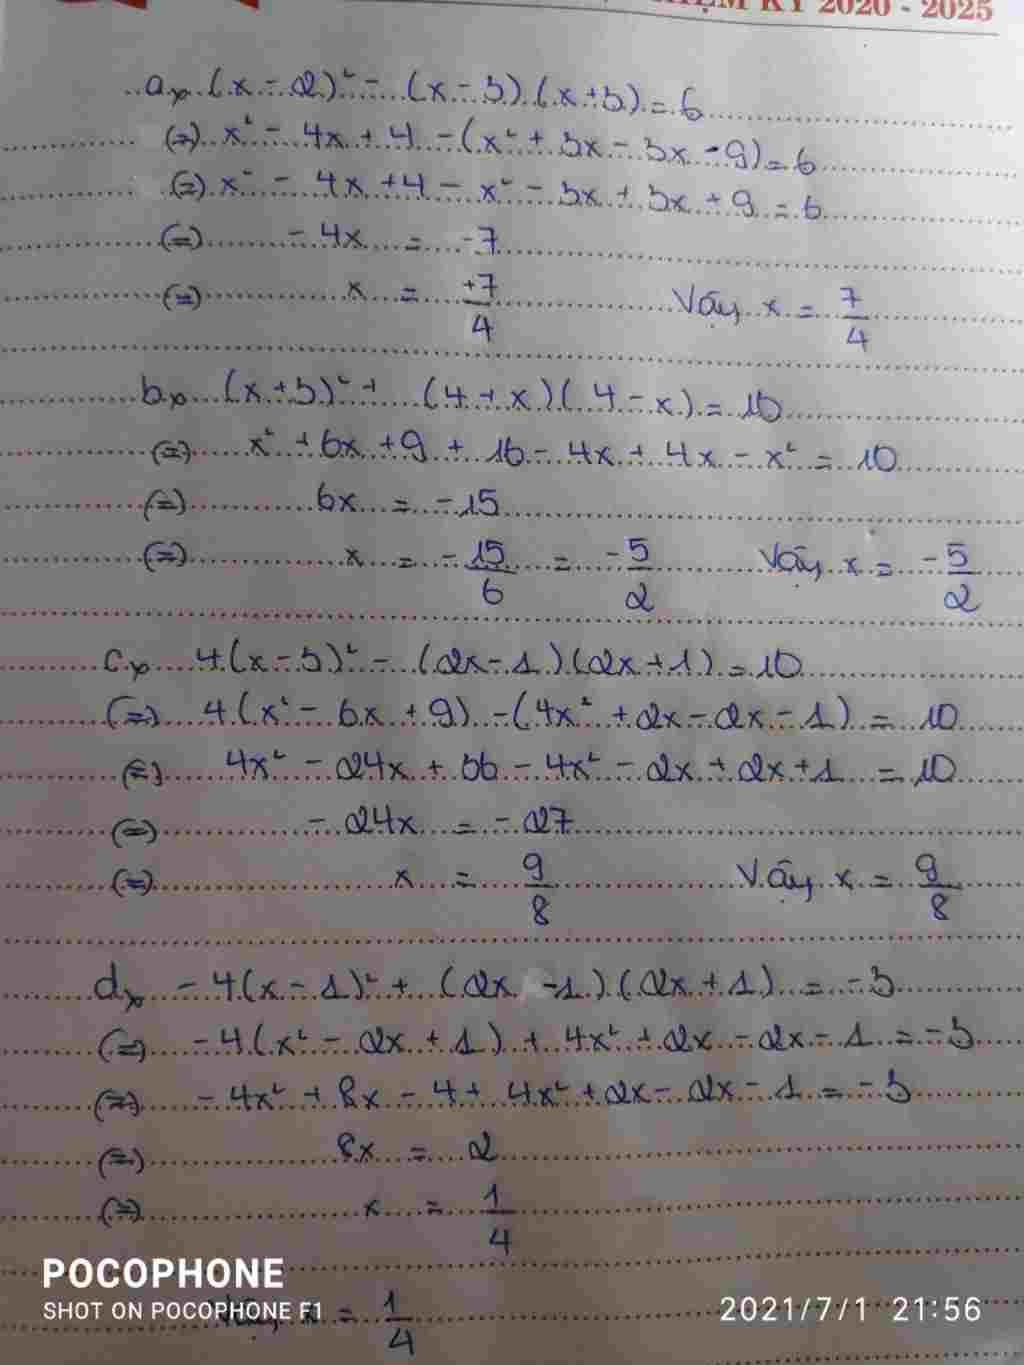 NHIỆM KỲ 2020 - 2025
a, (x - 2)² - (x - 3)(x + 3) = 6
(=) x² - 4x + 4 - (x² + 3x - 3x - 9) = 6
(=) x² - 4x + 4 - x² - 3x + 3x + 9 = 6
(=) - 4x = - 7
(=) x = +7/4 Vậy x = 7/4
b, (x + 3)² + (4 + x)(4 - x) = 10
(=) x² + 6x + 9 + 16 - 4x + 4x - x² = 10
(=) 6x = - 15
(=) x = - 15/6 = - 5/2 Vậy x = - 5/2
c, 4(x - 3)² - (2x - 1)(2x + 1) = 10
(=) 4(x² - 6x + 9) - (4x² + 2x - 2x - 1) = 10
(=) 4x² - 24x + 36 - 4x² - 2x + 2x + 1 = 10
(=) - 24x = - 27
(=) x = 9/8 Vậy x = 9/8
d, - 4(x - 1)² + (2x - 1)(2x + 1) = - 3
(=) - 4(x² - 2x + 1) + 4x² + 2x - 2x - 1 = - 3
(=) - 4x² + 8x - 4 + 4x² + 2x - 2x - 1 = - 3
(=) 8x = 2
(=) x = 1/4
POCOPHONE
SHOT ON POCOPHONE F1
Vậy x = 1/4
2021/7/1 21:56